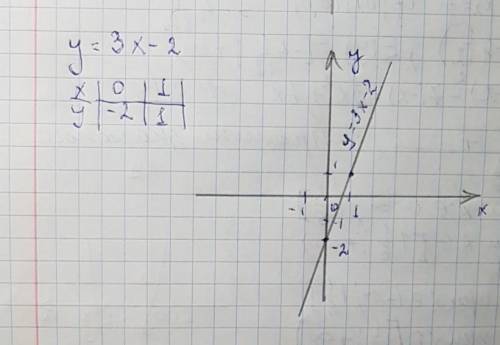 y = 3x - 2
x | 0 | 1
y | -2 | 1
y
y=3x-2
1
-1 0 1 x
-1
-2